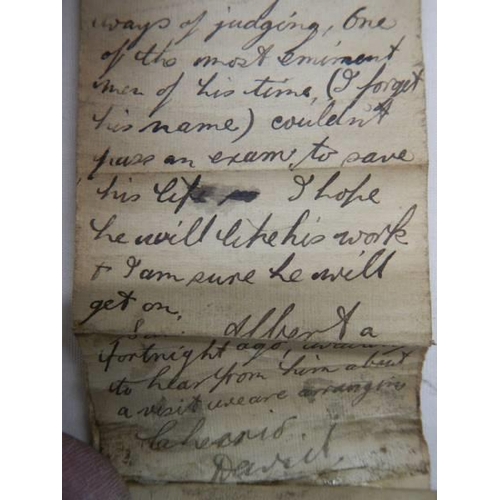 ways of judging, One
of the most eminent
men of his time, (I forget
his name) couldn't
pass an exam, to save
his life I hope
he will like his work
+ I am sure he will
get on.
Albert a
fortnight ago,
to hear from him about
a visit we are arranging
David